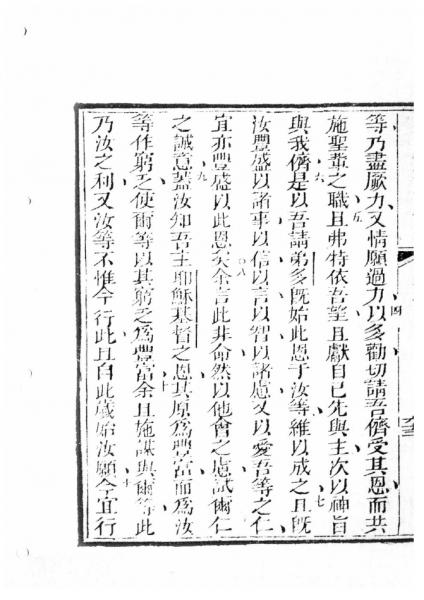 等乃盡厥力又情願過力以多勸切請吾儕受其恩而共
施聖輩之職且弗特依吾望且獻自己先與主次以神旨
與我儕是以吾請弟多既始此恩于汝等維以成之且既
汝豐盛以諸事以信以言以智以諸慮又以愛吾等之仁
宜亦豐盛以此恩矣余言此非命然以他會之慮試爾仁
之誠意蓋汝知吾主耶穌基督之恩其原為豐富而為汝
等作窮乏使爾等以其窮乏為豐富余且施謀與爾等此
乃汝之利又汝等不惟今行此且自此歲始汝願今宜行
四
五
六
七
八
九
十